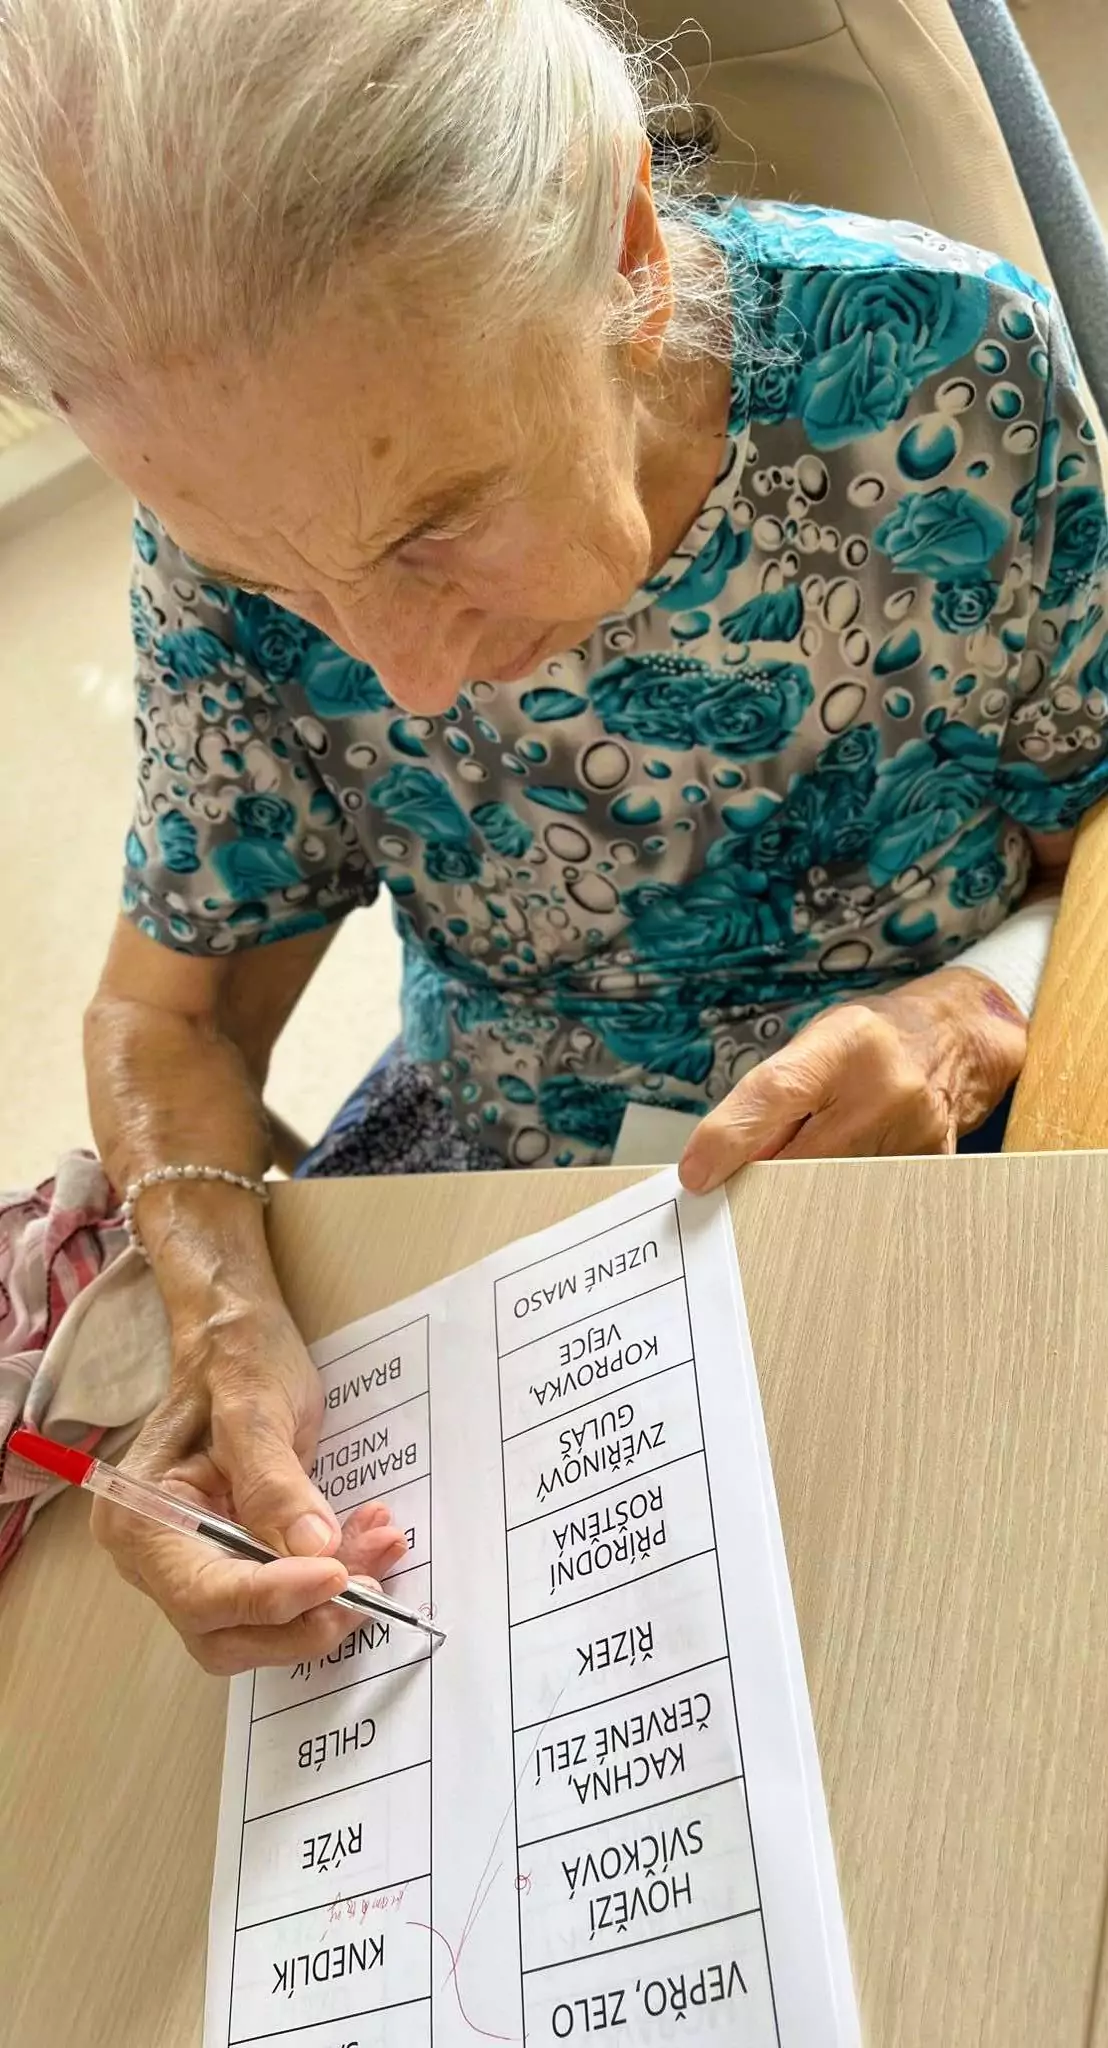 VEPŘO, ZELO
HOVĚZÍ
SVÍČKOVÁ
KACHNA,
ČERVENÉ ZELÍ
ŘÍZEK
PŘÍRODNÍ
ROŠTĚNÁ
ZVĚŘINOVÝ
GULÁŠ
KOPROVKA,
VEJCE
UZENÉ MASO
KNEDLÍK
RÝŽE
CHLÉB
KNEDLÍK
BRAMBOR
KNEDLÍK
BRAMBO